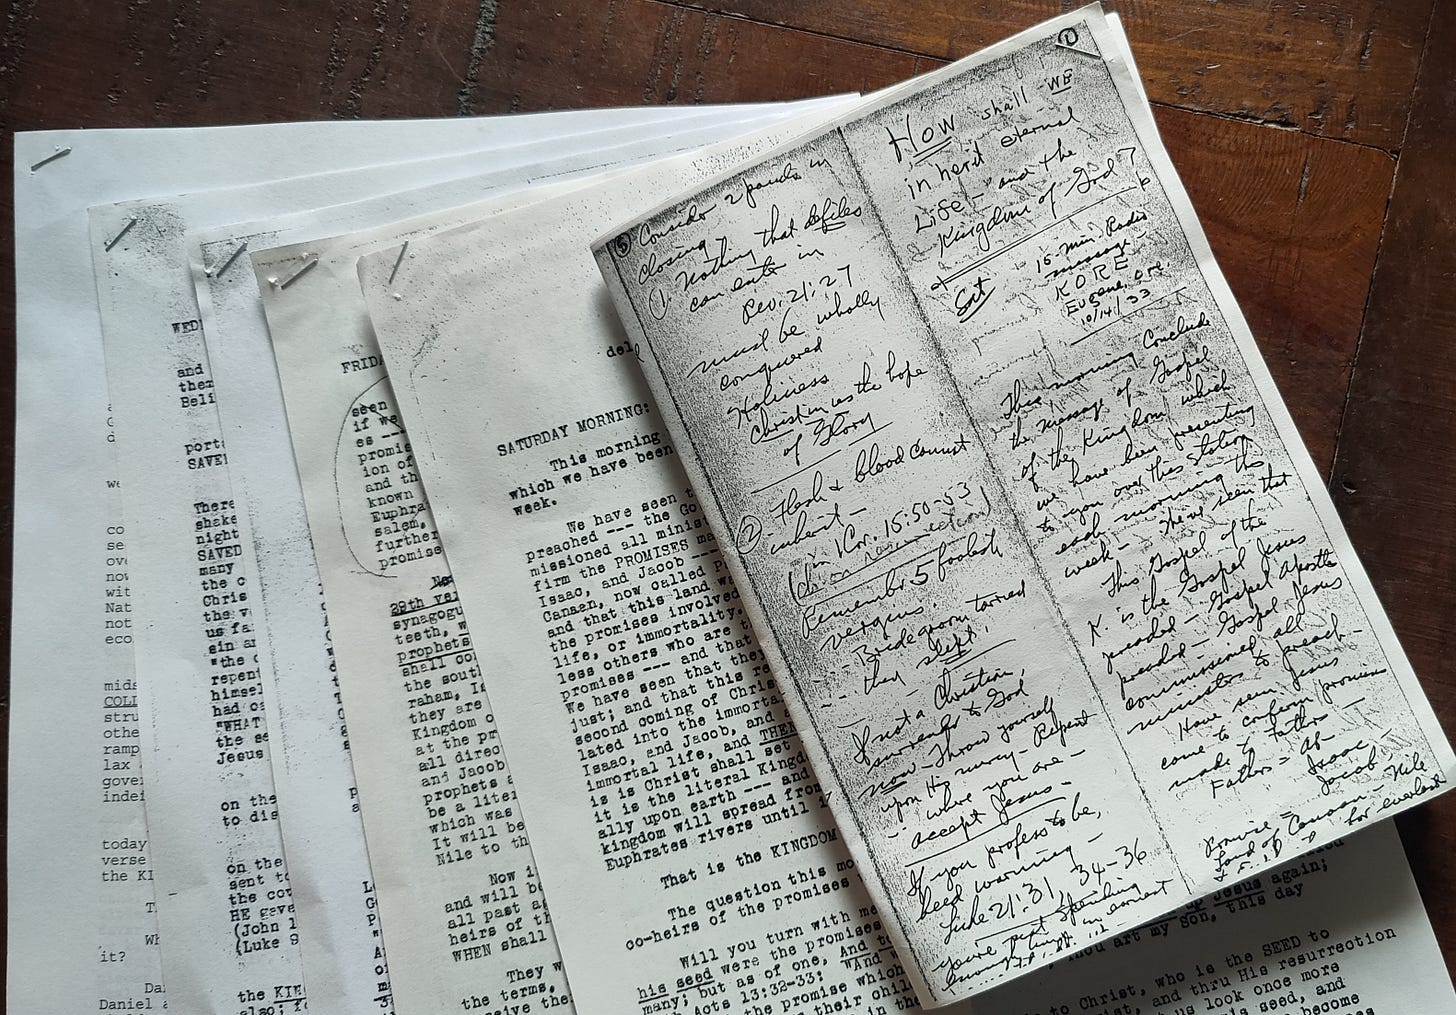 WED
and
them
Beli
porta
SAVE
There
shake
night
SAVED
many
the c
Chris
the v
us fa
sin an
"the
repent
himsel
had o
"WHAT
the se
Jesus
on the
to dis
on the
sent to
the cov
HE gave
(John 1
(Luke 9
the KIN
also; f
co
se
ove
now
wit
Nat
not
eco
mids
COLL
stru
othe
ramp
lax
gover
indef
today
verse
the KI
T
Wh
it?
Da
Daniel a
FRIDA
seen
if we
es ---
promis
ion of
and th
known
Euphra
salem,
further
promise
29th ver
synagogu
teeth, w
prophets
shall co
the sout
raham, I
they are
Kingdom o
at the pr
all direc
and Jacob
prophets a
be a liter
which was
It will be
Nile to th
Now i
and will be
all past ag
heirs of th
WHEN shall
They w
the terms,
del
SATURDAY MORNING:
This morning
which we have been
week.
We have seen t
preached --- the Go
missioned all minis
firm the PROMISES ma
Isaac, and Jacob ---
Canaan, now called P
and that this land wa
the promises involved
life, or immortality.
less others who are t
promises --- and that
We have seen that they
just; and that this re
second coming of Chris
lated into the immortal
Isaac, and Jacob, and a
immortal life, and THEN
is is Christ shall set
it is the literal Kingd
ally upon earth --- and
kingdom will spread from
Euphrates rivers until i
That is the KINGDOM
The question this mo
co-heirs of the promises
Will you turn with me
his seed were the promises
many; but as of one, And to
Acts 13:32-33: "And w
the promise which
their chil
up Jesus again;
Thou art my son, this day
to Christ, who is the SEED to
ist, and thru His resurrection
us look once more
is seed, and
become
5 Consider 2 points in
closing
1 Nothing that defiles
can enter in
Rev. 21:27
must be wholly
conquered
Holiness
Christ in us the hope
of Glory
2 Flesh & blood cannot
inherit -
1 Cor. 15:50-53
Remember 5 foolish
virgins.
- Bridegroom tarried
- they slept!
If not a Christian
surrender to God
now - Throw yourself
upon His mercy - Repent
- where you are -
accept Jesus -
If you profess to be,
heed warning -
Luke 21:31, 34-36
1
How shall WE
inherit eternal
Life - and the
Kingdom of God?
Sat
15-min Radio
message -
KORE
Eugene, Ore.
10/14/33
This morning conclude
the message of Gospel
of the Kingdom which
we have been presenting
to you over this station
each morning this
week - We've seen that
This Gospel of the
K. is the Gospel Jesus
preached - Gospel apostles
preached - Gospel Jesus
commissioned all
ministers to preach -
Have seen Jesus
came to confirm promises
made to Fathers -
Fathers = Ab.
Isaac -
Jacob -
Promise =
Land of Canaan - Nile